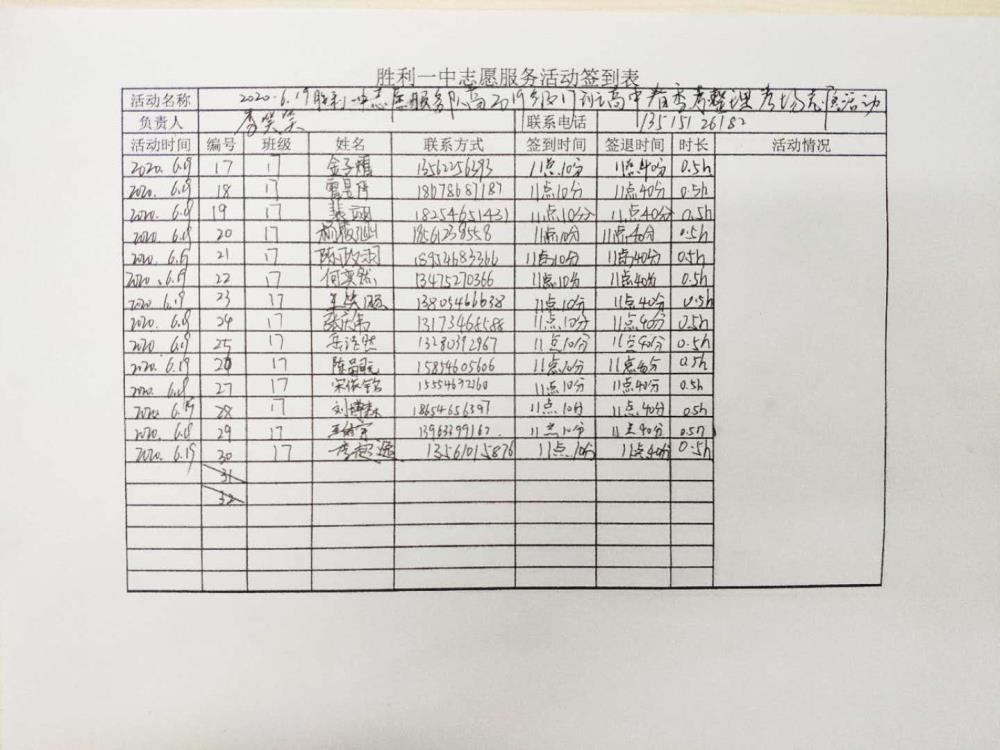 胜利一中志愿服务活动签到表
活动名称 2020.6.19胜利一中志愿服务部高2019级 高中春季高考整理考场志愿活动
负责人 李笑笑 联系电话 13515126182
活动时间 编号 班级 姓名 联系方式 签到时间 签退时间 时长 活动情况
2020. 6.19 17 17 13562256393 11点10分 11点40分 0.5h
2020. 6.19 18 17 18678687187 11点10分 11点40分 0.5h
2020. 6.19 19 17 18254651431 11点10分 11点40分 0.5h
2020. 6.19 20 17 18561238558 11点10分 11点40分 0.5h
2020. 6.19 21 17 陈政羽 18954683366 11点10分 11点40分 0.5h
2020. 6.19 22 17 何奕然 13475270366 11点10分 11点40分 0.5h
2020 6.19 23 17 13805466638 11点10分 11点40分 0.5h
2020. 6.19 24 17 张庆伟 13173468588 11点10分 11点40分 0.5h
2020 6.19 25 17 13280392967 11点10分 11点40分 0.5h
2020. 6.19 26 17 15854605606 11点10分 11点40分 0.5h
2020. 6.19 27 17 15554692160 11点10分 11点40分 0.5h
2020. 6.19 28 17 刘博森 18654656397 11点10分 11点40分 0.5h
2020. 6.19 29 17 13963399162 11点10分 11点40分 0.5h
2020. 6.19 30 17 李超逸 13561015876 11点10分 11点40分 0.5h
31
32